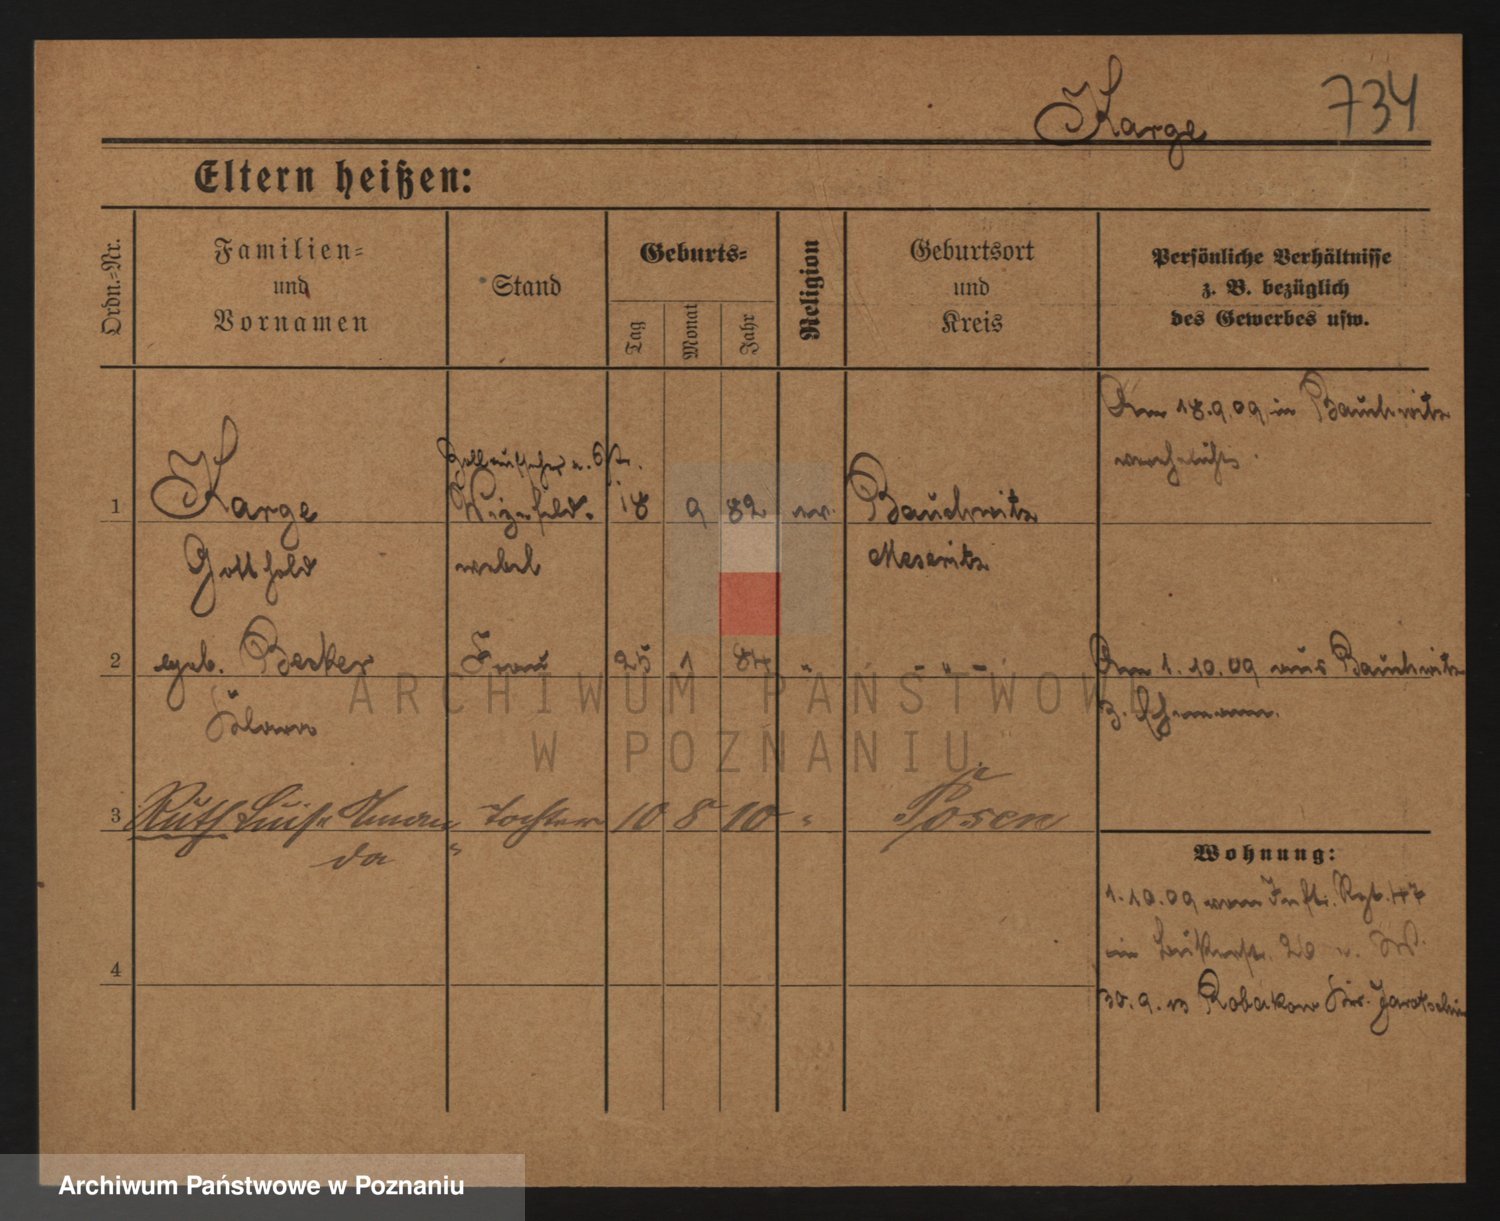 Karge 734
Eltern heißen:
Ordn.-Nr.
Familien-
und
Vornamen
Stand
Geburts-
Tag
Monat
Jahr
Religion
Geburtsort
und
Kreis
Persönliche Verhältnisse
z. B. bezüglich
des Gewerbes usw.
Am 18.9.09 in Bauchwitz
verehelicht.
1 Karge 18 9 82 ev. Bauchwitz
Gotthold webel Meseritz
2 geb. Becker Frau 25 1 84 " - " - Am 1.10.09 aus Bauchwitz
z. Ehemann.
3 Ruth Luise Aman Tochter 10 8 10 " Posen
da "
Wohnung:
1.10.09 vom Inftr. Rgt. 47
in 20
4
30.9.13 Robakow Kr. Jarotschin
ARCHIWUM PAŃSTWOWE
W POZNANIU
Archiwum Państwowe w Poznaniu